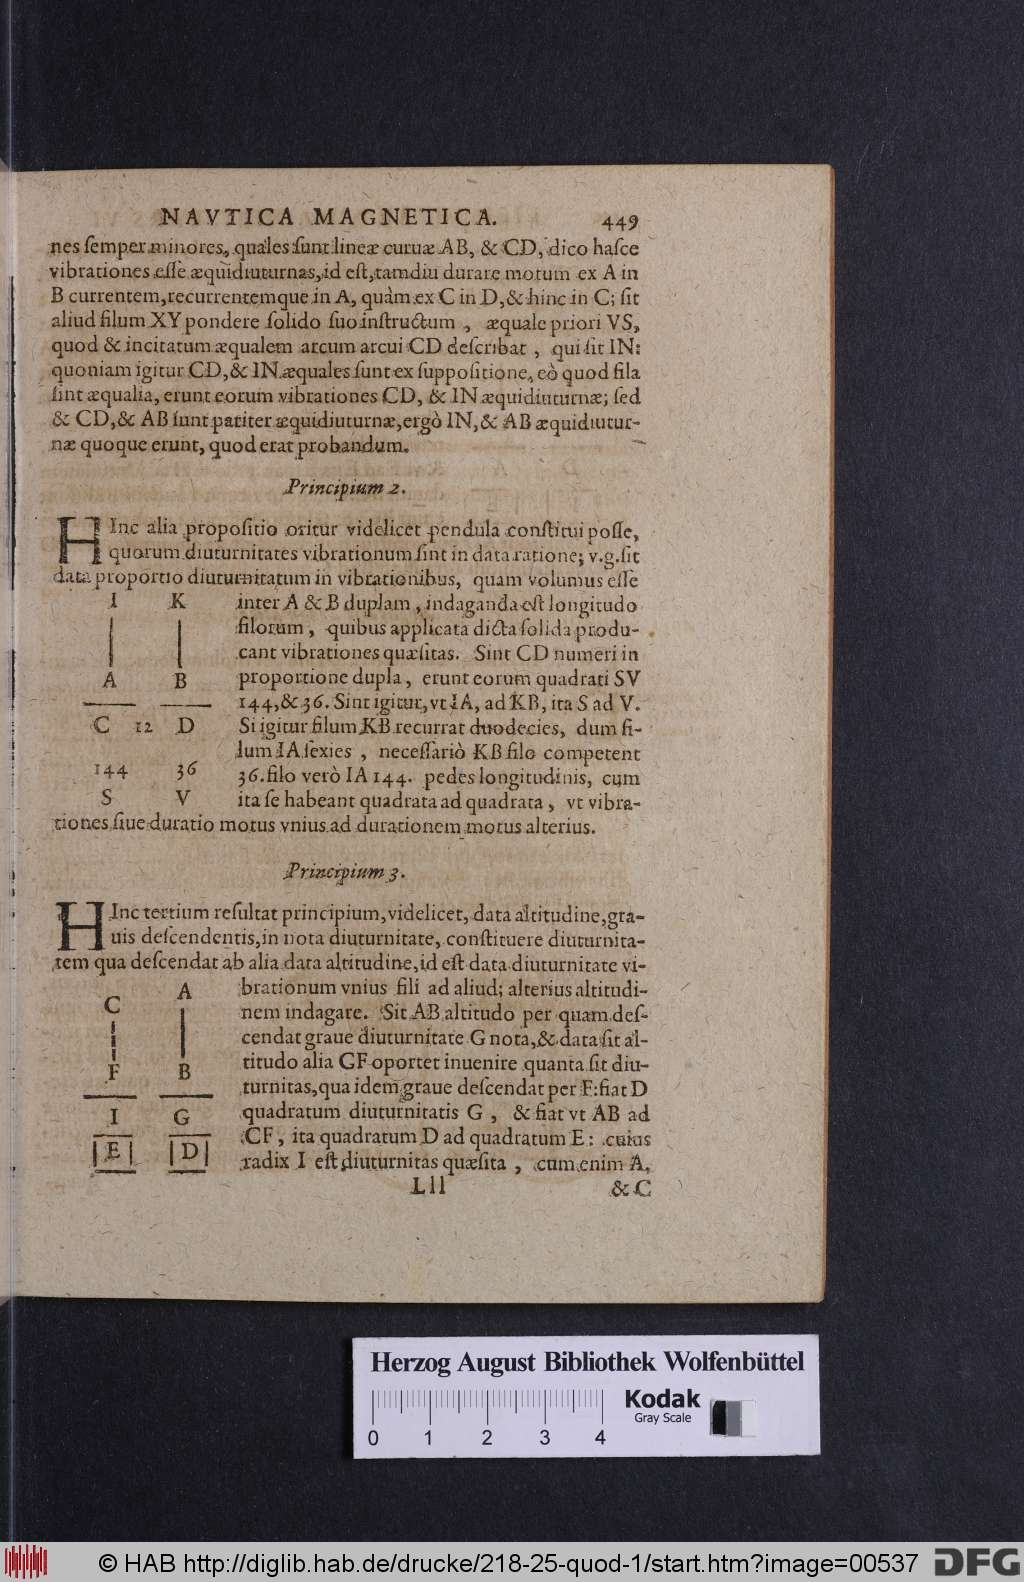 NAVTICA MAGNETICA. 449
nes ſemper minores, quales ſunt lineæ curuæ AB, & CD, dico haſce
vibrationes eſſe æquidiuturnas, id eſt, tamdiu durare motum ex A in
B currentem, recurrentemque in A, quàm ex C in D, & hinc in C; ſit
aliud filum XY pondere ſolido ſuo inſtructum , æquale priori VS,
quod & incitatum æqualem arcum arcui CD deſcribat , qui ſit IN:
quoniam igitur CD, & IN æquales ſunt ex ſuppoſitione, eò quod fila
ſint æqualia, erunt eorum vibrationes CD, & IN æquidiuturnæ; ſed
& CD, & AB ſunt pariter æquidiuturnæ, ergò IN, & AB æquidiutur-
næ quoque erunt, quod erat probandum.
Principium 2.
HInc alia propoſitio oritur videlicet pendula conſtitui poſſe,
quorum diuturnitates vibrationum ſint in data ratione; v.g. ſit
data proportio diuturnitatum in vibrationibus, quam volumus eſſe
inter A & B duplam , indaganda eſt longitudo
filorum , quibus applicata dicta ſolida produ-
cant vibrationes quæſitas. Sint CD numeri in
proportione dupla , erunt eorum quadrati SV
144, & 36. Sint igitur, vt IA, ad KB, ita S ad V.
Si igitur filum KB recurrat duodecies, dum fi-
lum IA ſexies , neceſſariò KB filo competent
36. filo verò IA 144. pedes longitudinis, cum
ita ſe habeant quadrata ad quadrata , vt vibra-
tiones ſiue duratio motus vnius ad durationem motus alterius.
I K
A B
C 12 D
144 36
S V
Principium 3.
HInc tertium reſultat principium, videlicet, data altitudine, gra-
uis deſcendentis, in nota diuturnitate, conſtituere diuturnita-
tem qua deſcendat ab alia data altitudine, id eſt data diuturnitate vi-
brationum vnius fili ad aliud; alterius altitudi-
nem indagare. Sit AB altitudo per quam deſ-
cendat graue diuturnitate G nota, & data ſit al-
titudo alia GF oportet inuenire quanta ſit diu-
turnitas, qua idem graue deſcendat per F: fiat D
quadratum diuturnitatis G , & fiat vt AB ad
CF , ita quadratum D ad quadratum E : cuius
radix I eſt diuturnitas quæſita , cum enim A,
C A
F B
I G
E D
Lll & C
Herzog August Bibliothek Wolfenbüttel
Kodak
Gray Scale
0 1 2 3 4
© HAB http://diglib.hab.de/drucke/218-25-quod-1/start.htm?image=00537 DFG